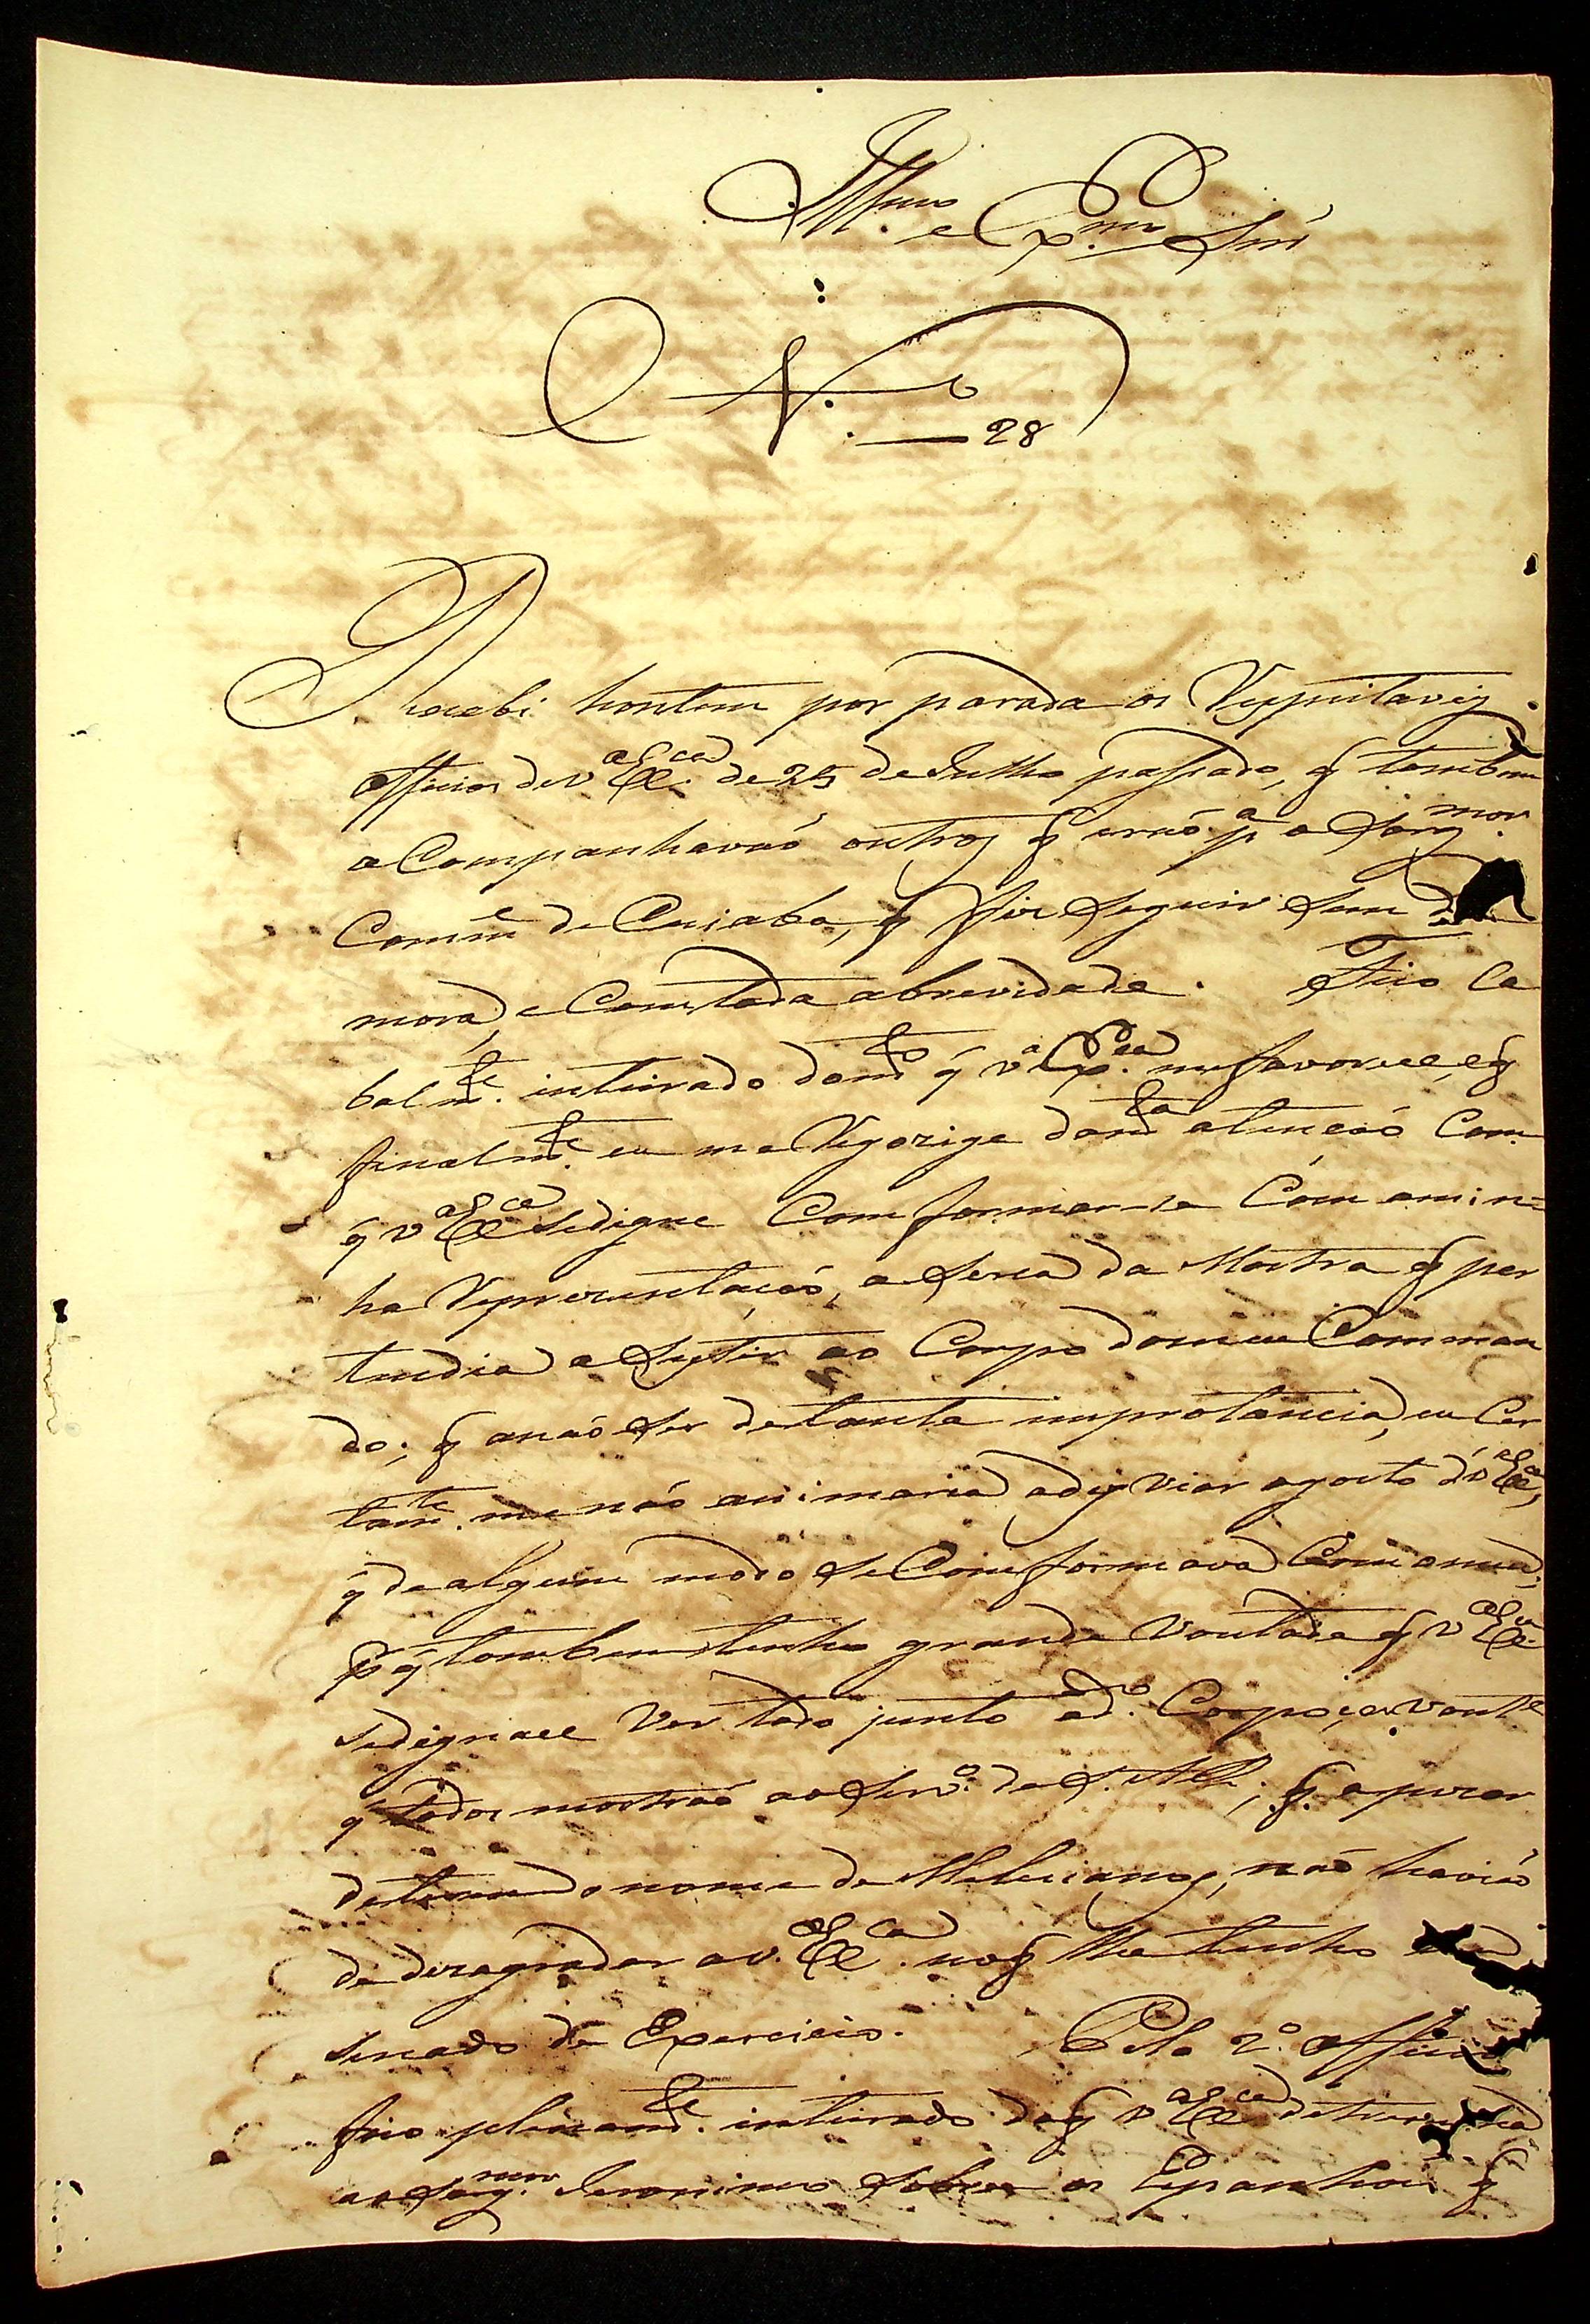 Illmo e Exmo Snr
N.o 28
Recebi hontem por parada os Respeitaveis
officios de V.a Ex.ca de 25 de Julho passado, q̃ tambem
aCompanhavaó outros q̃ eraó p.a o Sarg.mor
Comm.e de Cuiaba, q̃ fiz seguir sem de
mora, e Com toda abrevidade. Fico Ca
balm.te inteirado do m.to q̃ V.a Ex.ca me favorece, e q̃
finalm.te eu me Regozige da m.ta atencaó Com
q̃ V.a Ex.ca se digne Comformar-se Com a min=
ha Reprezentacaó, a serca da Mostra q̃ per
tendia asestir ao Corpo do meu Comman
do; q̃ a naó ser de tanta improtancia, eu Cer
tam.te me naó animaria a desviar o gosto d' V.a Ex.ca,
q̃ de algum modo se Comformava Com o meu,
p.r q̃ tambem tenho grande Vontade q̃ V.a Ex.ca
se dignace Ver todo junto o d.o Corpo, e a Vont.e
q̃ todos mostraó ao Serv.o de S. A. R.; q̃ apezar
de terem o nome de Melicianos, naó haviaó
de dezagradar a V. Ex.ca no q̃ lhe tenho
senado de Exercicio. Pelo 2.o officio
fico plenam.te inteirado do q̃ V.a Ex.ca determina
ao Sarg.mor Jeronimo sobre os Espanhois q̃